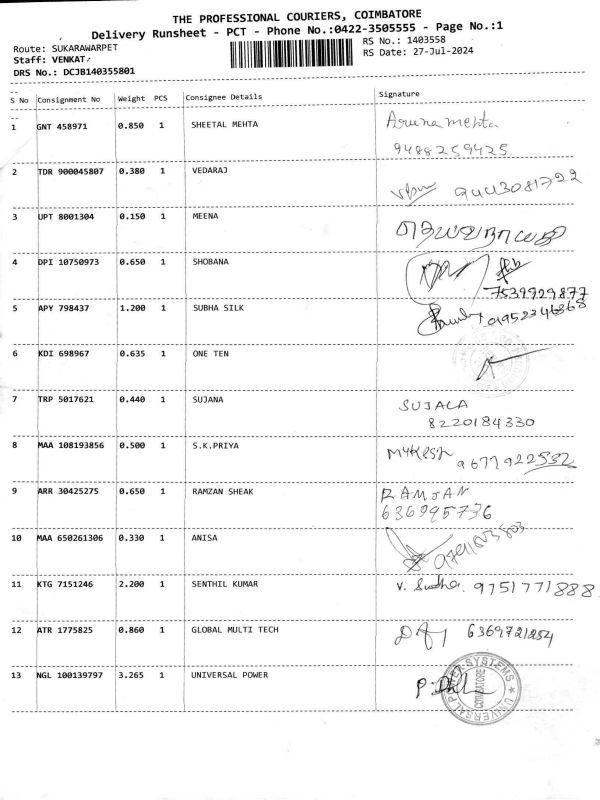 THE PROFESSIONAL COURIERS, COIMBATORE
Delivery Runsheet - PCT - Phone No.:0422-3505555 - Page No.:1
Route: SUKARAWARPET
RS No.: 1403558
Staff: VENKAT
RS Date: 27-Jul-2024
DRS No.: DCJB140355801
S No Consignment No Weight PCS Consignee Details Signature
1 GNT 458971 0.850 1 SHEETAL MEHTA Aruna mehta
9488259425
2 TDR 900045807 0.380 1 VEDARAJ
3 UPT 8001304 0.150 1 MEENA
4 DPI 10750973 0.650 1 SHOBANA
7539929877
5 APY 798437 1.200 1 SUBHA SILK
6 KDI 698967 0.635 1 ONE TEN
7 TRP 5017621 0.440 1 SUJANA SUJALA
8220184330
8 MAA 108193856 0.500 1 S.K.PRIYA Mukesh 9677922532
9 ARR 30425275 0.650 1 RAMZAN SHEAK RAMJAN
636995736
10 MAA 650261306 0.330 1 ANISA
11 KTG 7151246 2.200 1 SENTHIL KUMAR V. Sudha. 9751771888
12 ATR 1775825 0.860 1 GLOBAL MULTI TECH 6369721254
13 NGL 100139797 3.265 1 UNIVERSAL POWER
UNIVERSAL POWER SYSTEMS
COIMBATORE